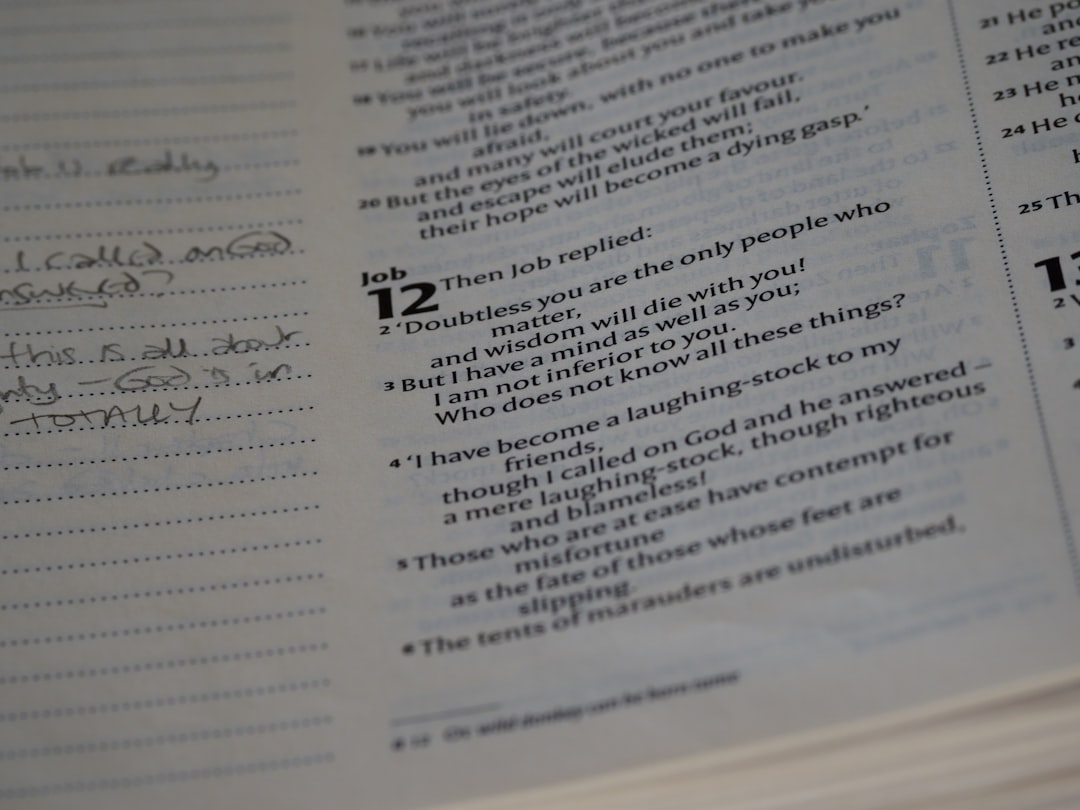 really
I called on God
answered?
this is all about
– God is in
TOTALLY
and darkness will become
18 You will be secure, because there
you will look about you and take
in safety.
19 You will lie down, with no one to make you
afraid,
and many will court your favour.
20 But the eyes of the wicked will fail,
and escape will elude them;
their hope will become a dying gasp.’
Job
12 Then Job replied:
2 ‘Doubtless you are the only people who
matter,
and wisdom will die with you!
3 But I have a mind as well as you;
I am not inferior to you.
Who does not know all these things?
4 ‘I have become a laughing-stock to my
friends,
though I called on God and he answered –
a mere laughing-stock, though righteous
and blameless!
5 Those who are at ease have contempt for
misfortune
as the fate of those whose feet are
slipping.
6 The tents of marauders are undisturbed,
a 12 Or wild donkey can be born tame
21 He
22 He
23 He
24 He
25
13
2
3
4